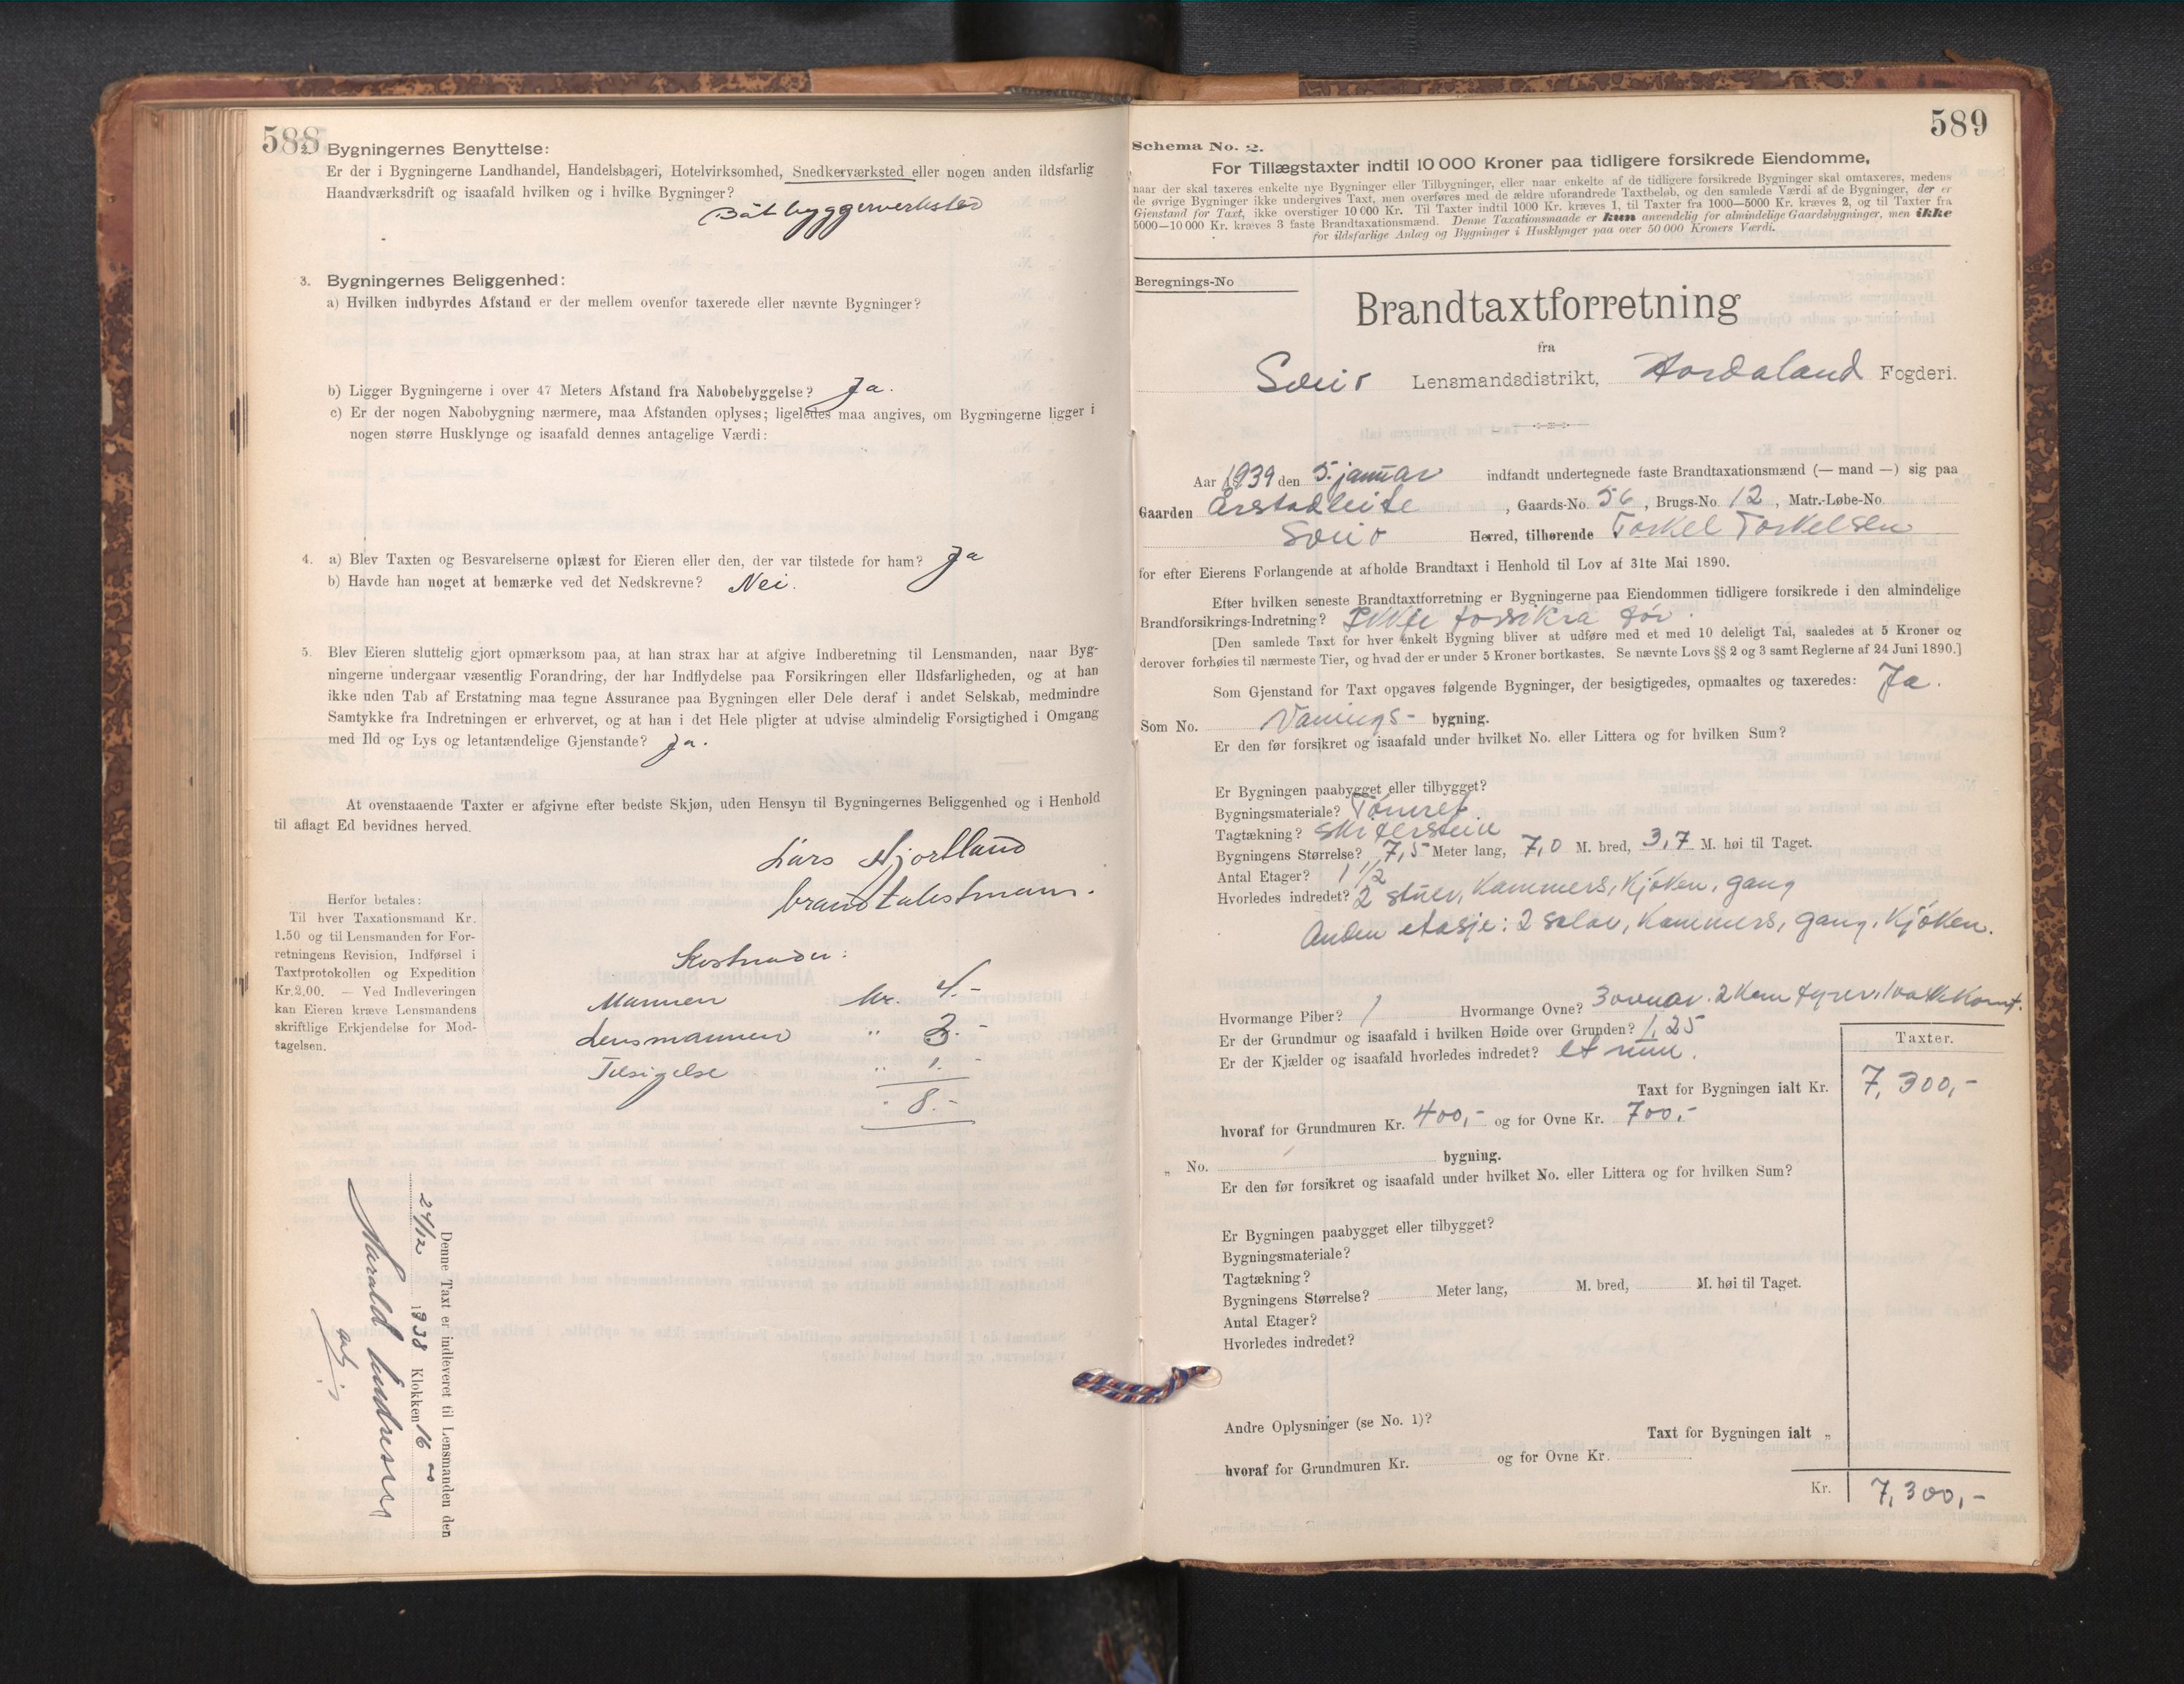 588
2. Bygningernes Benyttelse:
Er der i Bygningerne Landhandel, Handelsbageri, Hotelvirksomhed, Snedkerværksted eller nogen anden ildsfarlig
Haandværksdrift og isaafald hvilken og i hvilke Bygninger?
Båtbyggerverksted
3. Bygningernes Beliggenhed:
a) Hvilken indbyrdes Afstand er der mellem ovenfor taxerede eller nævnte Bygninger?
b) Ligger Bygningerne i over 47 Meters Afstand fra Nabobebyggelse? Ja.
c) Er der nogen Nabobygning nærmere, maa Afstanden oplyses; ligeledes maa angives, om Bygningerne ligger i
nogen større Husklynge og isaafald dennes antagelige Værdi:
4. a) Blev Taxten og Besvarelserne oplæst for Eieren eller den, der var tilstede for ham? Ja
b) Havde han noget at bemærke ved det Nedskrevne? Nei.
5. Blev Eieren sluttelig gjort opmærksom paa, at han strax har at afgive Indberetning til Lensmanden, naar Byg-
ningerne undergaar væsentlig Forandring, der har Indflydelse paa Forsikringen eller Ildsfarligheden, og at han
ikke uden Tab af Erstatning maa tegne Assurance paa Bygningen eller Dele deraf i andet Selskab, medmindre
Samtykke fra Indretningen er erhvervet, og at han i det Hele pligter at udvise almindelig Forsigtighed i Omgang
med Ild og Lys og letantændelige Gjenstande? Ja.
At ovenstaaende Taxter er afgivne efter bedste Skjøn, uden Hensyn til Bygningernes Beliggenhed og i Henhold
til aflagt Ed bevidnes herved.
Lars Hjortland
brandtakstmann.
Herfor betales:
Til hver Taxationsmand Kr.
1.50 og til Lensmanden for For-
retningens Revision, Indførsel i
Taxtprotokollen og Expedition
Kr. 2.00. — Ved Indleveringen
kan Eieren kræve Lensmandens
skriftlige Erkjendelse for Mod-
tagelsen.
Kostnader:
Mannen kr. 4.-
Lensmannen " 3.-
Tilsigelse " 1.-
" 8.-
Denne Taxt er indleveret til Lensmanden den
24/12 1938 Klokken 16 00
Harald Lindresen
589
Schema No. 2.
For Tillægstaxter indtil 10 000 Kroner paa tidligere forsikrede Eiendomme,
naar der skal taxeres enkelte nye Bygninger eller Tilbygninger, eller naar enkelte af de tidligere forsikrede Bygninger skal omtaxeres, medens
de øvrige Bygninger ikke undergives Taxt, men overføres med de ældre uforandrede Taxtbeløb, og den samlede Værdi af de Bygninger, der er
Gjenstand for Taxt, ikke overstiger 10 000 Kr. Til Taxter indtil 1000 Kr. kræves 1, til Taxter fra 1000—5000 Kr. kræves 2, og til Taxter fra
5000—10 000 Kr. kræves 3 faste Brandtaxationsmænd. Denne Taxationsmaade er kun anvendelig for almindelige Gaardsbygninger, men ikke
for ildsfarlige Anlæg og Bygninger i Husklynger paa over 50 000 Kroners Værdi.
Beregnings-No
Brandtaxtforretning
fra
Sveio Lensmandsdistrikt, Hordaland Fogderi.
Aar 1939 den 5. januar indfandt undertegnede faste Brandtaxationsmænd (— mand —) sig paa
Gaarden Årstadleite, Gaards-No. 56, Brugs-No. 12, Matr.-Løbe-No.
Sveio Herred, tilhørende Torkel Torkelsen
for efter Eierens Forlangende at afholde Brandtaxt i Henhold til Lov af 31te Mai 1890.
Efter hvilken seneste Brandtaxtforretning er Bygningerne paa Eiendommen tidligere forsikrede i den almindelige
Brandforsikrings-Indretning? Ikkje forsikra før.
[Den samlede Taxt for hver enkelt Bygning bliver at udføre med et med 10 deleligt Tal, saaledes at 5 Kroner og
derover forhøies til nærmeste Tier, og hvad der er under 5 Kroner bortkastes. Se nævnte Lovs §§ 2 og 3 samt Reglerne af 24 Juni 1890.]
Som Gjenstand for Taxt opgaves følgende Bygninger, der besigtigedes, opmaaltes og taxeredes: Ja.
Som No. Vånings- bygning.
Er den før forsikret og isaafald under hvilket No. eller Littera og for hvilken Sum?
Er Bygningen paabygget eller tilbygget?
Bygningsmateriale? Tømret.
Tagtækning? skiferstein
Bygningens Størrelse? 7,5 Meter lang, 7,0 M. bred, 3,7 M. høi til Taget.
Antal Etager? 1 1/2
Hvorledes indredet? 2 stuer, kammers, kjøken, gang
Anden etasje: 2 salar, kammers, gang, kjøken.
Hvormange Piber? 1 Hvormange Ovne? 3 ovnar. 2 kom fyrer, 1 vaskkomf.
Er der Grundmur og isaafald i hvilken Høide over Grunden? 1,25
Er der Kjælder og isaafald hvorledes indredet? et rum.
Taxter.
Taxt for Bygningen ialt Kr. 7,300,-
hvoraf for Grundmuren Kr. 400,- og for Ovne Kr. 700,-
" No. bygning.
Er den før forsikret og isaafald under hvilket No. eller Littera og for hvilken Sum?
Er Bygningen paabygget eller tilbygget?
Bygningsmateriale?
Tagtækning?
Bygningens Størrelse? Meter lang, M. bred, M. høi til Taget.
Antal Etager?
Hvorledes indredet?
Andre Oplysninger (se No. 1)?
Taxt for Bygningen ialt "
hvoraf for Grundmuren Kr. og for Ovne Kr.
Kr. 7,300,-